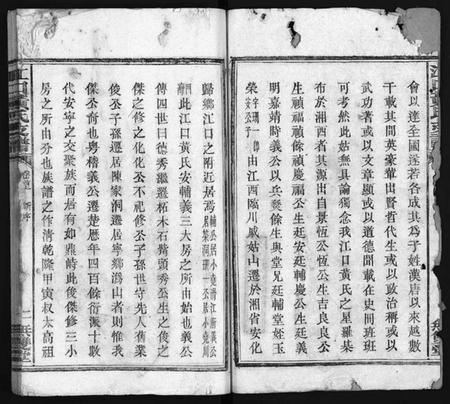 會以達全國遂若各成其為子姓漢唐以來越數
千載其間英豪輩出賢肖代生或以政治稱或以
武功著或以文章顯或以道德聞載在史冊班班
可考然此姑無具論獨念我江口黃氏之星羅棊
布於湘西者其源出自景恆公恆公生吉良良公
生禎福禎祿禎慶福公生廷安廷輔慶公生廷義
明嘉靖時義公以兵燹餘生與堂兄廷輔堂姪玉
榮安公子字珊一郎由江西臨川戚姑山遷於湘省安化
歸鄉江口之附近居焉
西此江口黃氏安輔義三大房之所由始也義公
傳四世曰德秀繼遷柘木石臂頭秀公生之俊之
傑之修之化化公不祀修公子孫世守先人舊業
俊公子孫遷居陳家洞遷居寧鄉溈山者則惟我
傑公裔也粤稽義公遷楚歷年四百餘衍派十數
代安寧之交聚族而居有如鼎峙此後傑修三小
房之所由分也族譜之作清乾隆甲寅叔太高祖
江口黃氏支譜